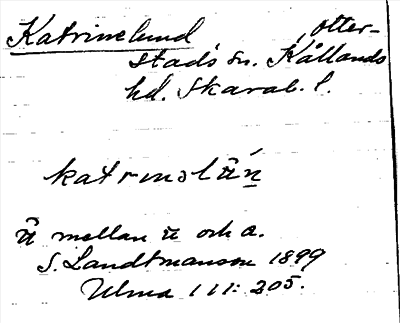 Katrinelund Otter-
stads sn. Kållands
hd. Skarab. l.
katrinəlʉ́n
ʉ̂ mellan ʉ och a.
S. Landtmanson 1899
Ulma 111: 205.